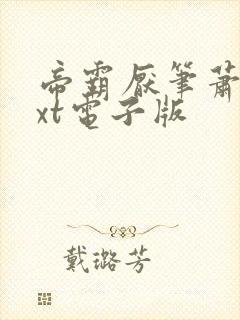 帝霸厌笔萧
xt电子版
戴璐芳